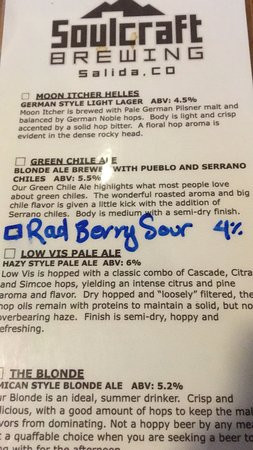 Soulcraft
BREWING
Salida.co
MOON ITCHER HELLES
GERMAN STYLE LIGHT LAGER ABV: 4.5%
Moon Itcher is brewed with Pale German Pilsner malt and
balanced by German Noble hops. Body is light and crisp
accented by a solid hop bitter. A floral hop aroma is
evident in the dense rocky head.
GREEN CHILE ALE
BLONDE ALE BREWED WITH PUEBLO AND SERRANO
CHILES ABV: 5.5%
Our Green Chile Ale highlights what most people love
about green chiles. The wonderful roasted aroma and big
chile flavor is given a little kick with the addition of
Serrano chiles. Body is medium with a semi-dry finish.
Rad Berry Sour 4%
LOW VIS PALE ALE
HAZY STYLE PALE ALE ABV: 6%
Low Vis is hopped with a classic combo of Cascade, Citra
and Simcoe hops, yielding an intense citrus and pine
aroma and flavor. Dry hopped and "loosely" filtered, the
hop oils remain with proteins to maintain a solid, but no
overbearing haze. Finish is semi-dry, hoppy and
efreshing.
THE BLONDE
MICAN STYLE BLONDE ALE ABV: 5.2%
ur Blonde is an ideal, summer drinker. Crisp and
licious, with a good amount of hops to keep the mal
vors from dominating. Not a hoppy beer by any mea
t a quaffable choice when you are seeking a beer to